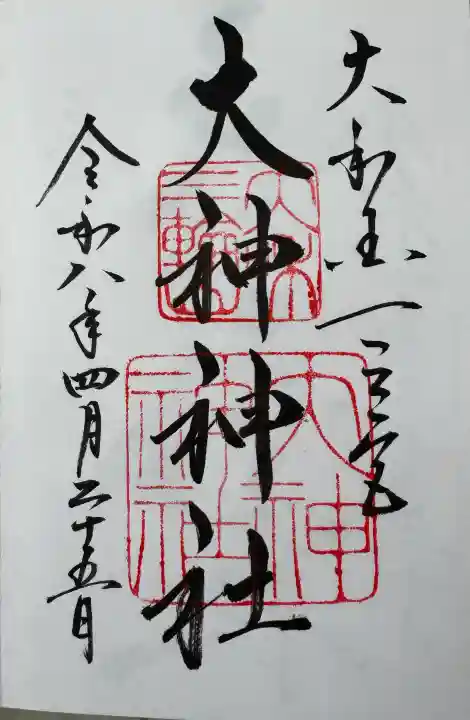 大和国一之宮
大神神社
三輪
大神
神社
令和八年四月二十五日